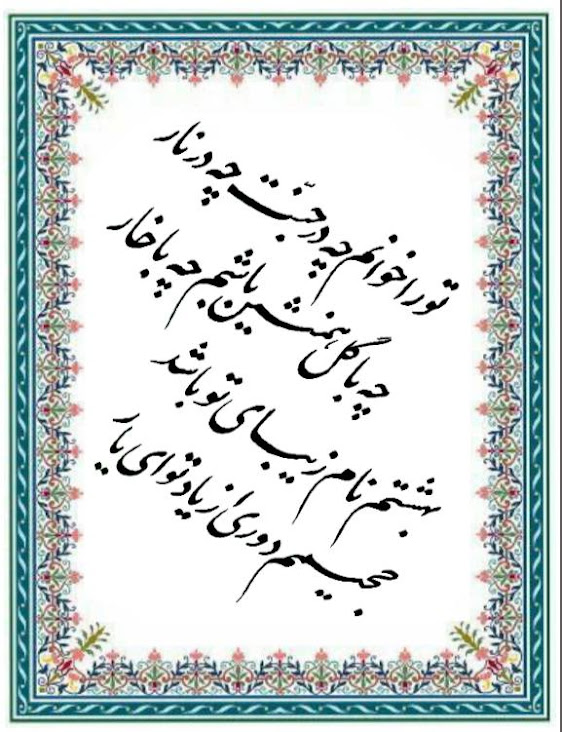 تو را خوانم چه در جنّت چه در نار
چه با گل همنشین باشم چه با خار
بهشتم نام زیبای تو باشد
جحیمم دوری از یاد تو ای یار